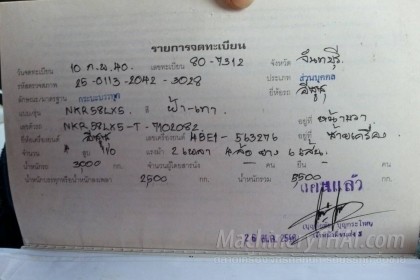 รายการจดทะเบียน
วันจดทะเบียน 10 ก.พ. 40 เลขทะเบียน 80-7312 จังหวัด จันทบุรี
รหัสตรวจสภาพ 25-0113-2042-3028 ประเภท ส่วนบุคคล
ลักษณะ/มาตรฐาน กระบะบรรทุก ยี่ห้อรถ อีซูซุ
แบบ/รุ่น NKR58LX5 สี ฟ้า-เทา
เลขตัวรถ NKR58LX5-T-7102082 อยู่ที่
ยี่ห้อเครื่องยนต์ อีซูซุ เลขเครื่องยนต์ 4BE1-563276 อยู่ที่
จำนวน 4 สูบ 110 แรงม้า 2 เพลา 4 ล้อ ยาง 6 เส้น
น้ำหนักรถ 3000 กก. จำนวนผู้โดยสารนั่ง - คน ยืน - คน
น้ำหนักบรรทุกหรือน้ำหนักลงเพลา 2500 กก. น้ำหนักรวม 5500 กก.
MachineryTHAI.com